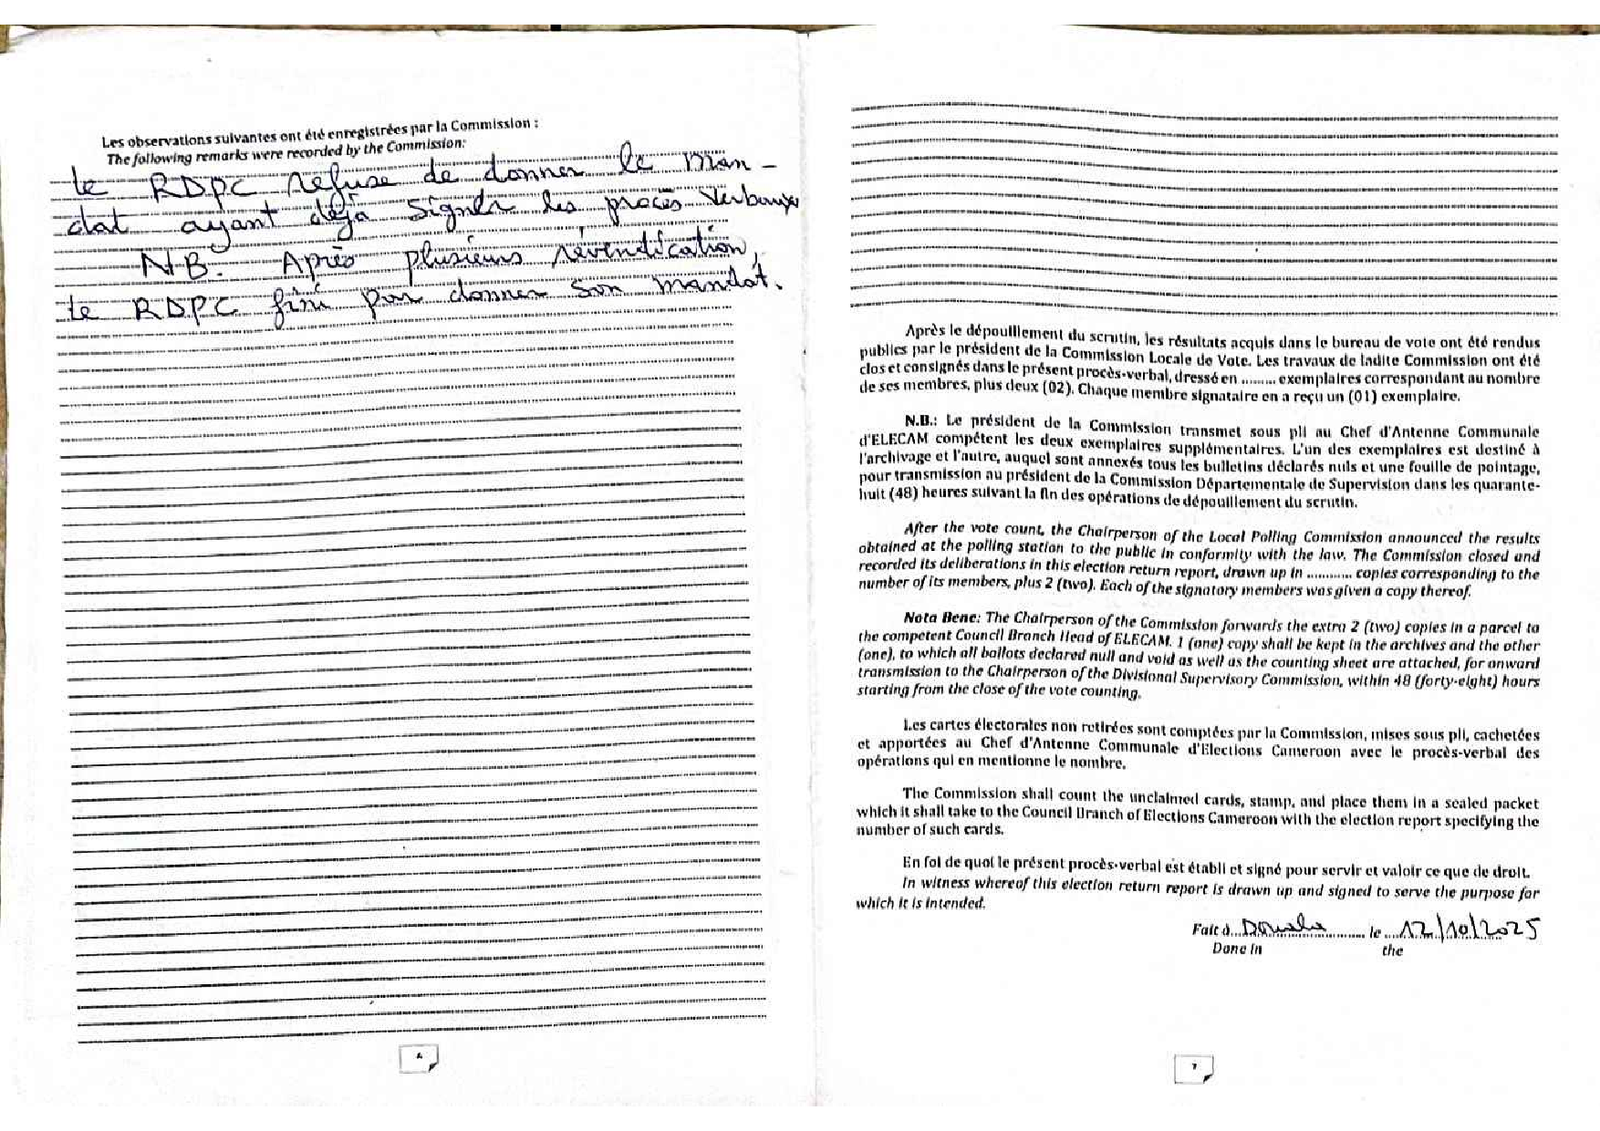 Les observations suivantes ont été enregistrées par la Commission :
The following remarks were recorded by the Commission:
le RDPC refuse de donner le man-
dat ayant déjà signer les procès verbaux
NB: Après plusieurs révendication,
le RDPC fini par donner son mandat.
6
Après le dépouillement du scrutin, les résultats acquis dans le bureau de vote ont été rendus
publics par le président de la Commission Locale de Vote. Les travaux de ladite Commission ont été
clos et consignés dans le présent procès-verbal, dressé en ......... exemplaires correspondant au nombre
de ses membres, plus deux (02). Chaque membre signataire en a reçu un (01) exemplaire.
N.B.: Le président de la Commission transmet sous pli au Chef d'Antenne Communale
d'ELECAM compétent les deux exemplaires supplémentaires. L'un des exemplaires est destiné à
l'archivage et l'autre, auquel sont annexés tous les bulletins déclarés nuls et une feuille de pointage,
pour transmission au président de la Commission Départementale de Supervision dans les quarante-
huit (48) heures suivant la fin des opérations de dépouillement du scrutin.
After the vote count, the Chairperson of the Local Polling Commission announced the results
obtained at the polling station to the public in conformity with the law. The Commission closed and
recorded its deliberations in this election return report, drawn up in ............ copies corresponding to the
number of its members, plus 2 (two). Each of the signatory members was given a copy thereof.
Nota Bene: The Chairperson of the Commission forwards the extra 2 (two) copies in a parcel to
the competent Council Branch Head of ELECAM. 1 (one) copy shall be kept in the archives and the other
(one), to which all ballots declared null and void as well as the counting sheet are attached, for onward
transmission to the Chairperson of the Divisional Supervisory Commission, within 48 (forty-eight) hours
starting from the close of the vote counting.
Les cartes électorales non retirées sont comptées par la Commission, mises sous pli, cachetées
et apportées au Chef d'Antenne Communale d'Elections Cameroon avec le procès-verbal des
opérations qui en mentionne le nombre.
The Commission shall count the unclaimed cards, stamp, and place them in a sealed packet
which it shall take to the Council Branch of Elections Cameroon with the election report specifying the
number of such cards.
En foi de quoi le présent procès-verbal est établi et signé pour servir et valoir ce que de droit.
In witness whereof this election return report is drawn up and signed to serve the purpose for
which it is intended.
Fait à Douala le 12/10/2025
Done in the
7